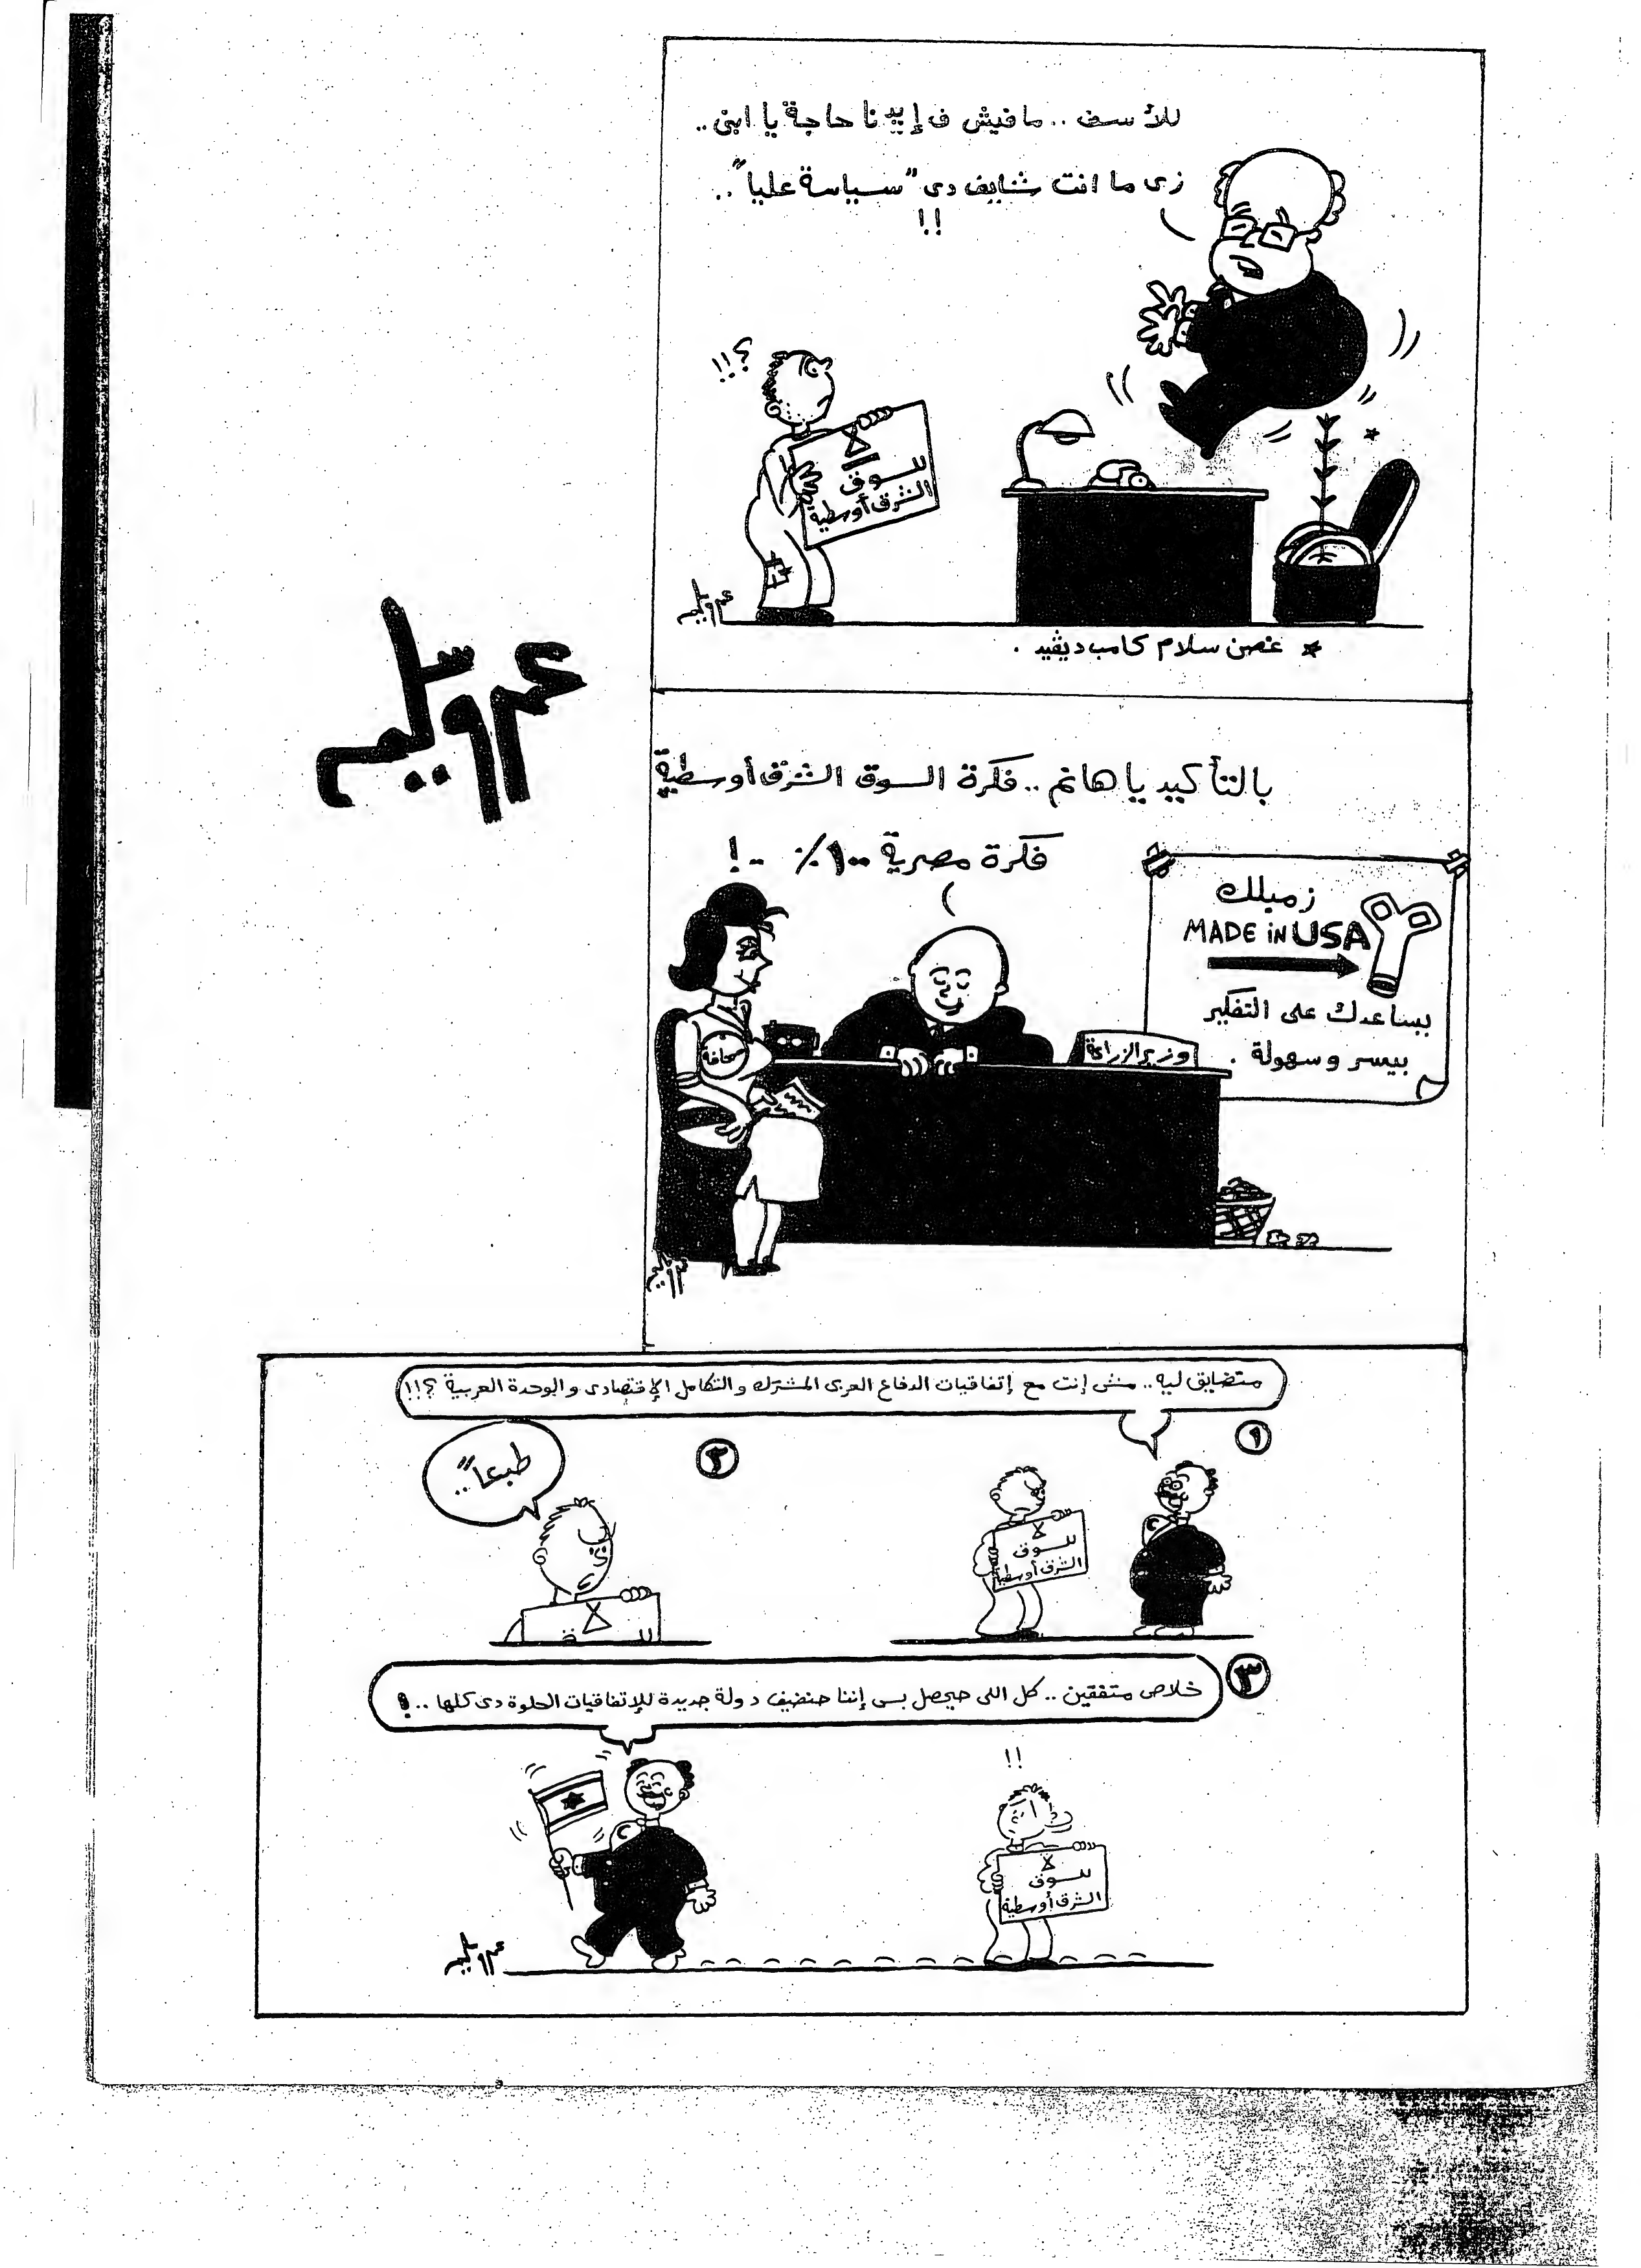 للأسف .. مافيش ف إيدنا حاجة يا ابنى ..
زى ما انت شايف دى "سياسة عليا" ..
!!
؟!!
لا
للسوق
الشرق أوسطية
عمرو سليم
* غصن سلام كامب ديڤيد .
عمرو سليم
بالتأكيد يا هانم .. فكرة السوق الشرق أوسطية
فكرة مصرية ١٠٠٪ .. !
زميلك
MADE in USA
بيساعدك على التفكير
بيسر وسهولة .
صحافة
وزير الزراعة
عمرو سليم
متضايق ليه .. مش إنت مع إتفاقيات الدفاع العربى المشترك والتكامل الإقتصادى والوحدة العربية ؟!!
١
لا
للسوق
الشرق أوسطية
٢
طبعاً ..
لا
٣
خلاص متفقين .. كل اللى حيحصل بس إننا حنضيف دولة جديدة للإتفاقيات الحلوة دى كلها .. !
!!
لا
للسوق
الشرق أوسطية
عمرو سليم